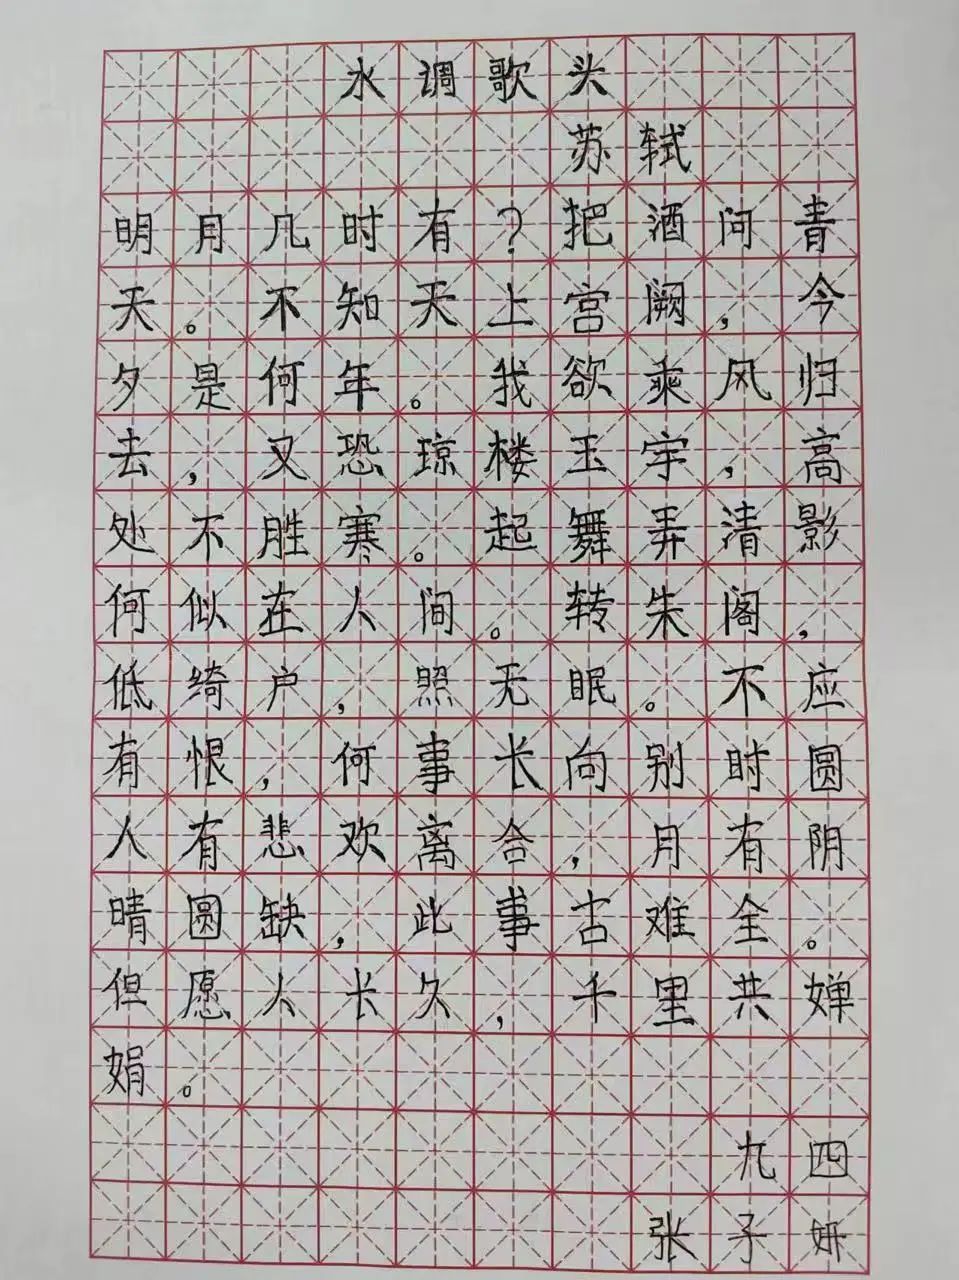 水调歌头
苏轼
明月几时有?把酒问青
天。不知天上宫阙,今
夕是何年。我欲乘风归
去,又恐琼楼玉宇,高
处不胜寒。起舞弄清影
何似在人间。转朱阁,
低绮户,照无眠。不应
有恨,何事长向别时圆
人有悲欢离合,月有阴
晴圆缺,此事古难全。
但愿人长久,千里共婵
娟。
九四
张子妍